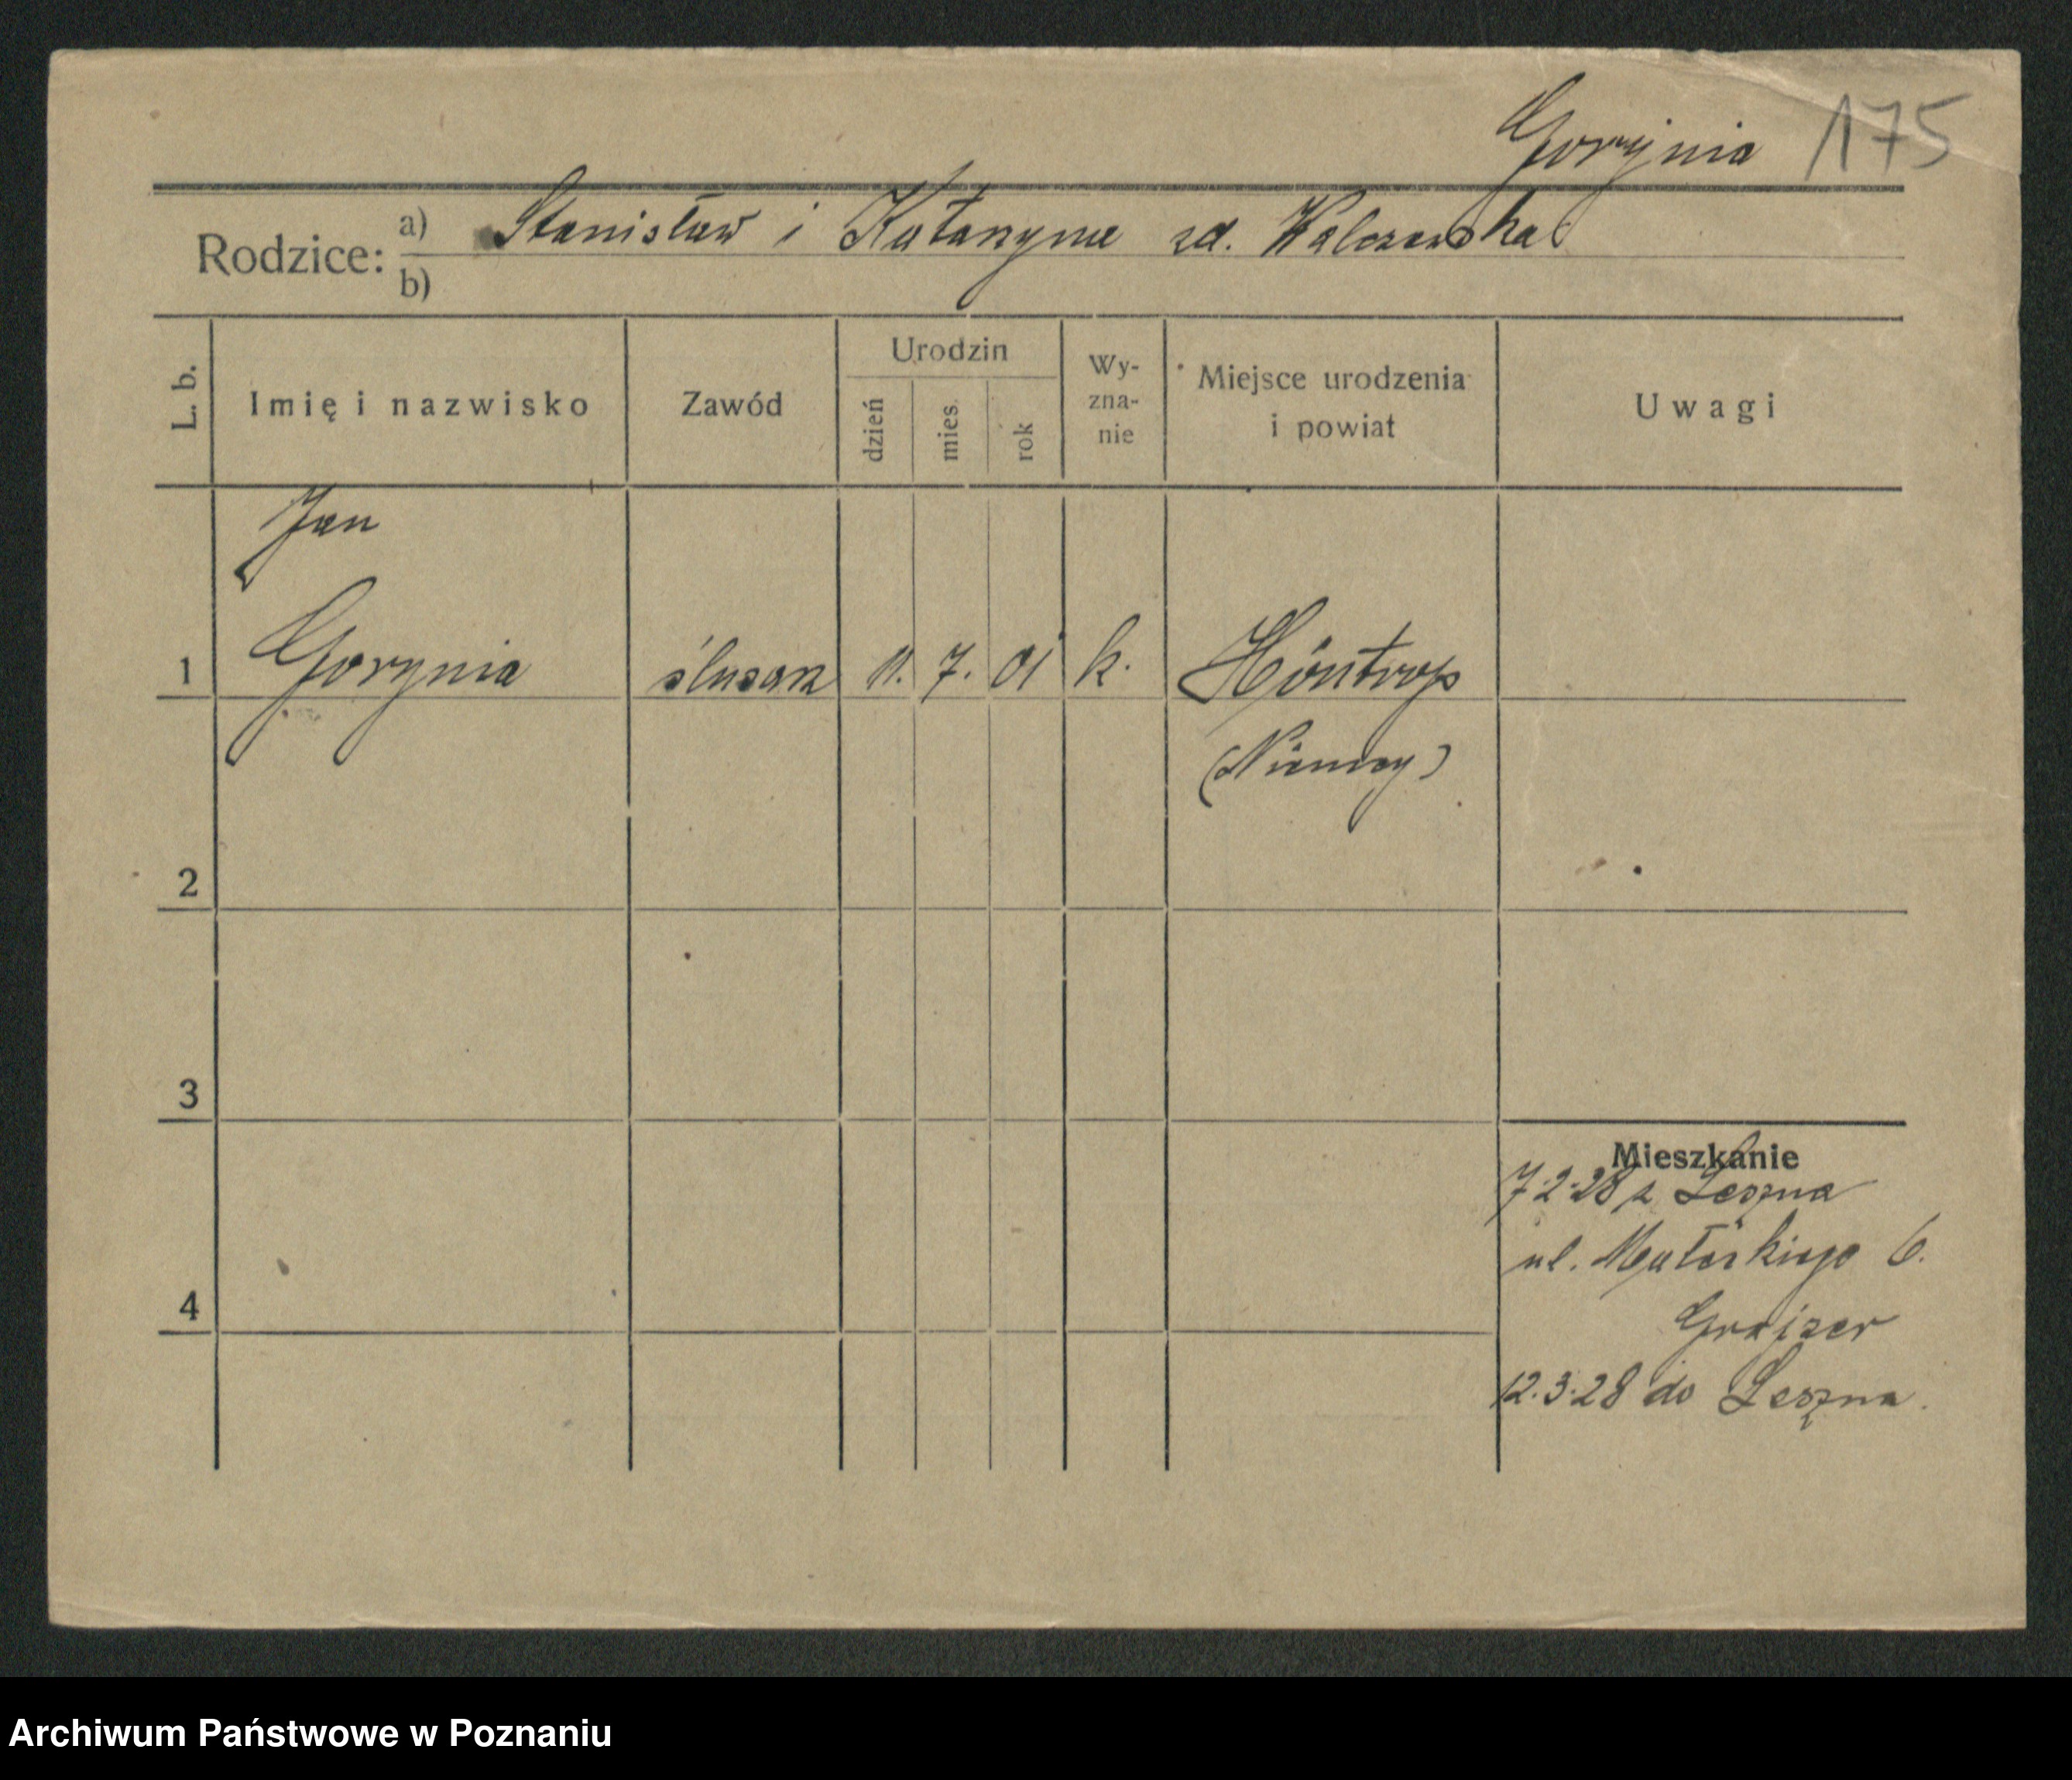 Gorynia 175
Rodzice: a) Stanisław i Katarzyna zd. Walczewska
b)
L. b. Imię i nazwisko Zawód Urodzin dzień mies. rok Wy-zna-nie Miejsce urodzenia i powiat Uwagi
Jan
1 Gorynia ślusarz 11. 7. 01 k. Höntrop
(Niemcy)
2
3
Mieszkanie
7.2.28 z Leszna
ul. 6.
4
Grajzer
12.3.28 do Leszna.
Archiwum Państwowe w Poznaniu